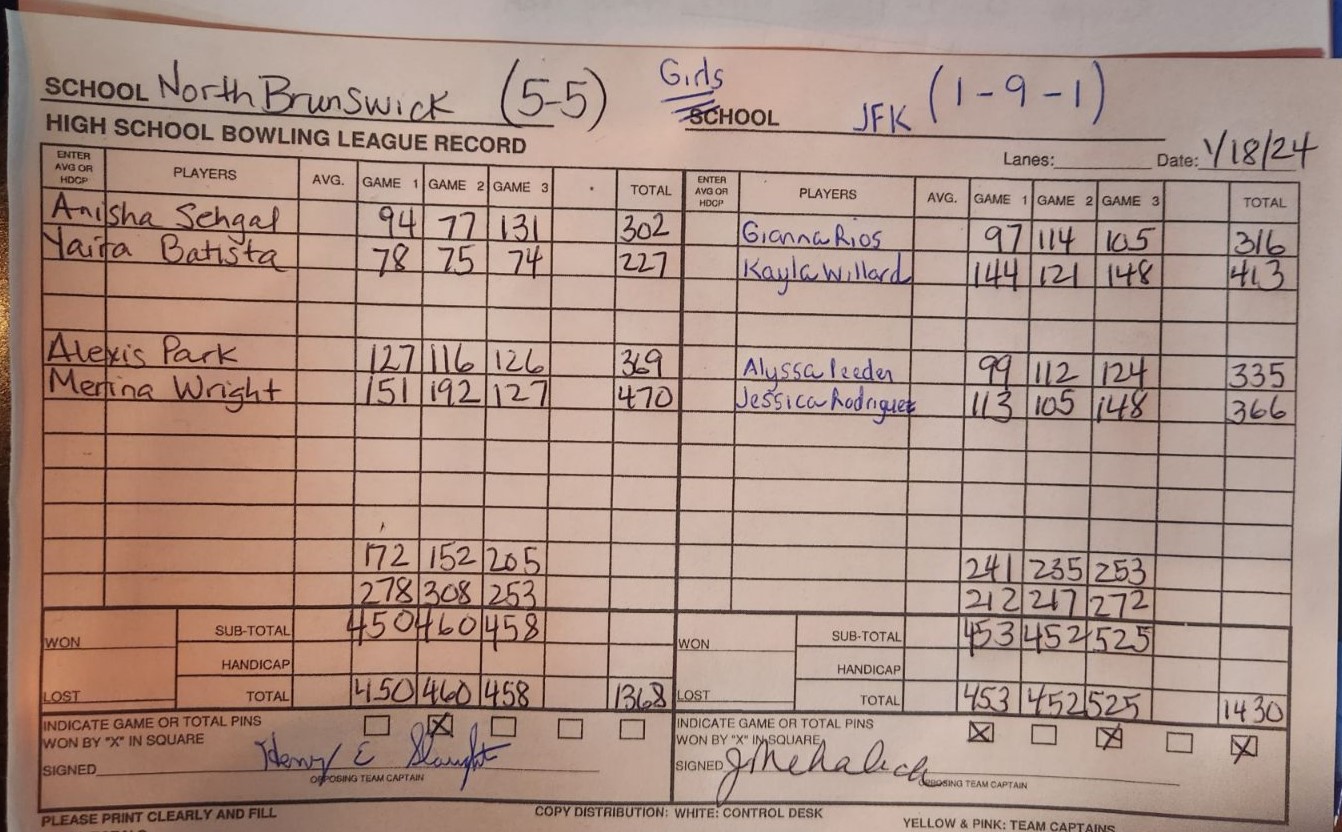 SCHOOL North Brunswick (5-5) Girls SCHOOL JFK (1-9-1)
HIGH SCHOOL BOWLING LEAGUE RECORD
Lanes: Date: 1/18/24
ENTER AVG OR HDCP PLAYERS AVG. GAME 1 GAME 2 GAME 3 TOTAL ENTER AVG OR HDCP PLAYERS AVG. GAME 1 GAME 2 GAME 3 TOTAL
Anisha Sehgal 94 77 131 302 Gianna Rios 97 114 105 316
Yaira Batista 78 75 74 227 Kayla Willard 144 121 148 413
Alexis Park 127 116 126 369 Alyssa 99 112 124 335
Merina Wright 151 192 127 470 Jessica Rodriguez 113 105 148 366
172 152 205 241 235 253
278 308 253 212 217 272
WON SUB-TOTAL 450 460 458 WON SUB-TOTAL 453 452 525
HANDICAP HANDICAP
LOST TOTAL 450 460 458 1368 LOST TOTAL 453 452 525 1430
INDICATE GAME OR TOTAL PINS X INDICATE GAME OR TOTAL PINS X X X
WON BY "X" IN SQUARE WON BY "X" IN SQUARE
SIGNED Henry E Slaught SIGNED
OPPOSING TEAM CAPTAIN OPPOSING TEAM CAPTAIN
PLEASE PRINT CLEARLY AND FILL COPY DISTRIBUTION: WHITE: CONTROL DESK YELLOW & PINK: TEAM CAPTAINS